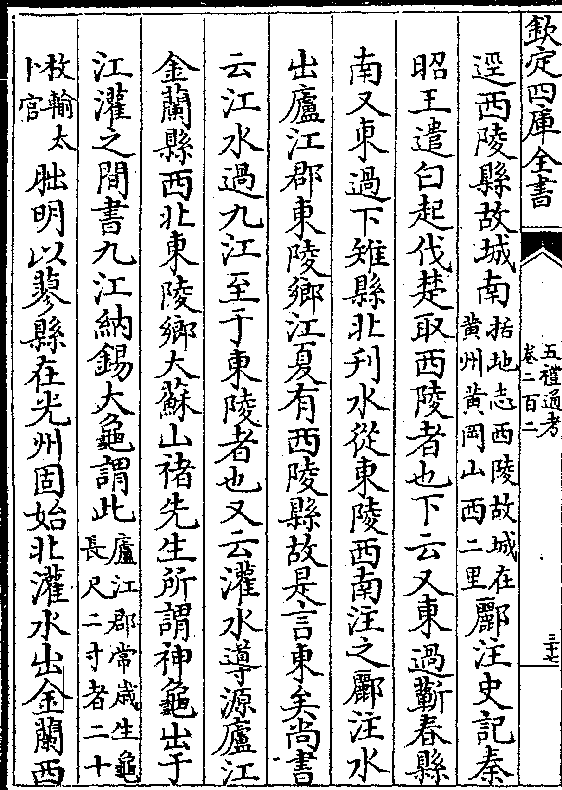 欽定四庫全書
五禮通考
卷二百二
三十七
逕西陵縣故城南括地志西陵故城在黄州黄岡山西二里酈注史記秦
昭王遣白起伐楚取西陵者也下云又東過蘄春縣
南又東過下雉縣北刋水從東陵西南注之酈注水
出廬江郡東陵鄉江夏有西陵縣故是言東矣尚書
云江水過九江至于東陵者也又云灌水導源廬江
金蘭縣西北東陵鄉大蘇山禇先生所謂神龜出于
江灌之間書九江納錫大龜謂此廬江郡常歲生龜長尺二寸者二十
枚輸太卜官朏明以蓼縣在光州固始北灌水出金蘭西